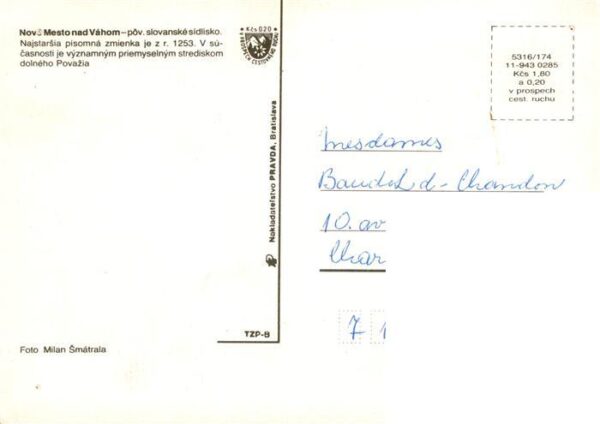 Nové Mesto nad Váhom – pôv. slovanské sídlisko.
Najstaršia písomná zmienka je z r. 1253. V sú-
časnosti je významným priemyselným strediskom
dolného Považia
Kčs 0,20
V PROSPECH CESTOVNÉHO RUCHU
5316/174
11-943 0285
Kčs 1,80
a 0,20
v prospech
cest. ruchu
Nakladateľstvo PRAVDA, Bratislava
TZP-B
Mesdames
d-Chandon
10. av
7 1
Foto Milan Šmátrala